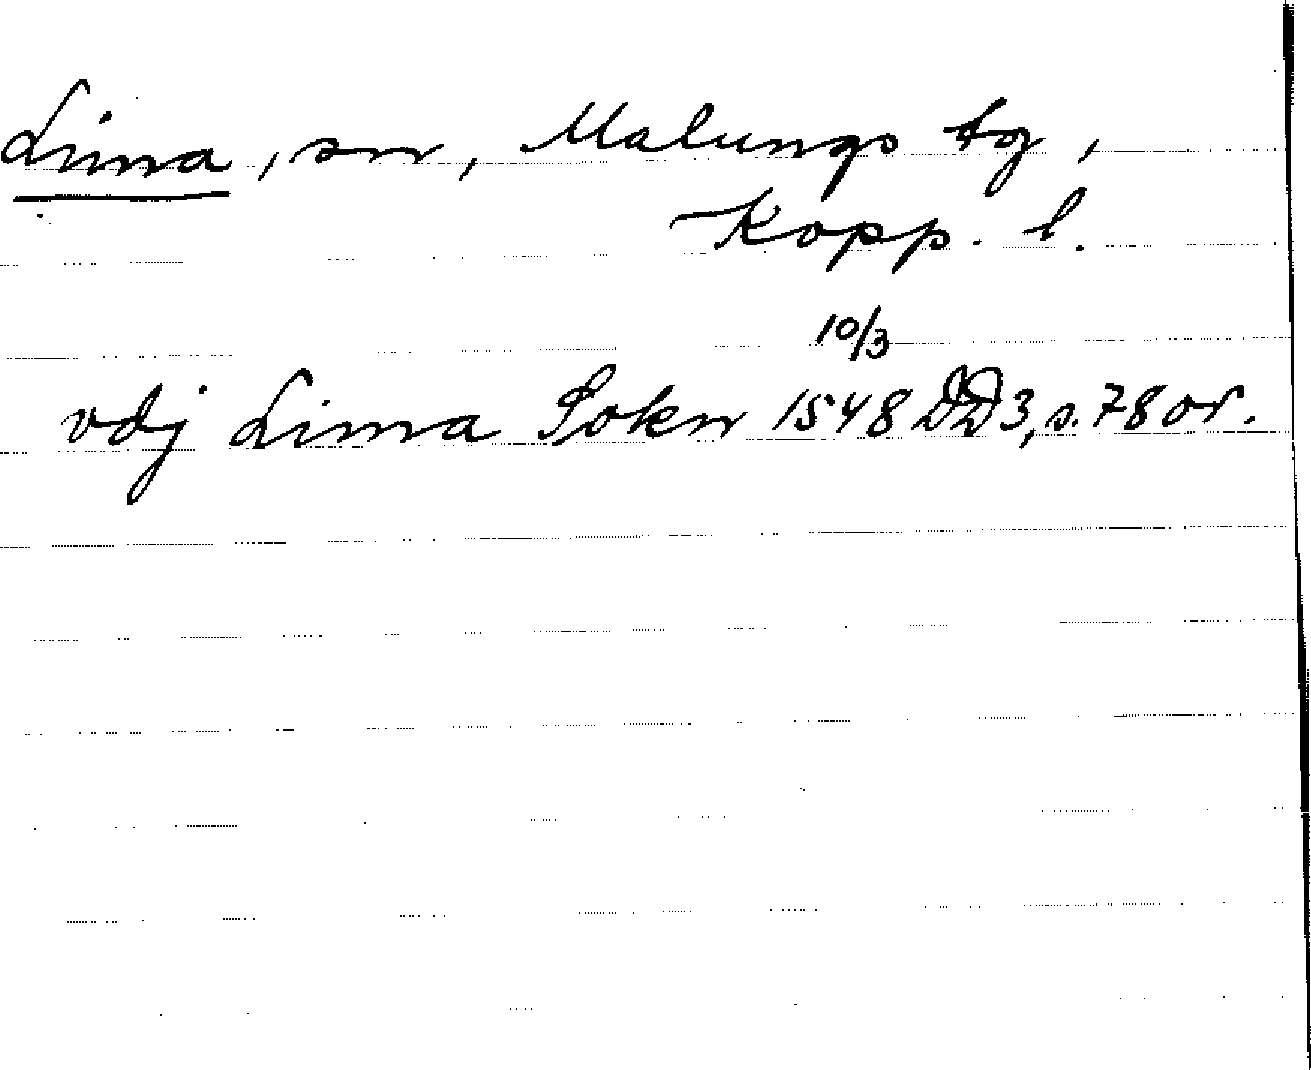 Lima, sn, Malungs tg,
Kopp. l.
10/3
vdj Lima Sokn 1548 DD3, s. 78 or.